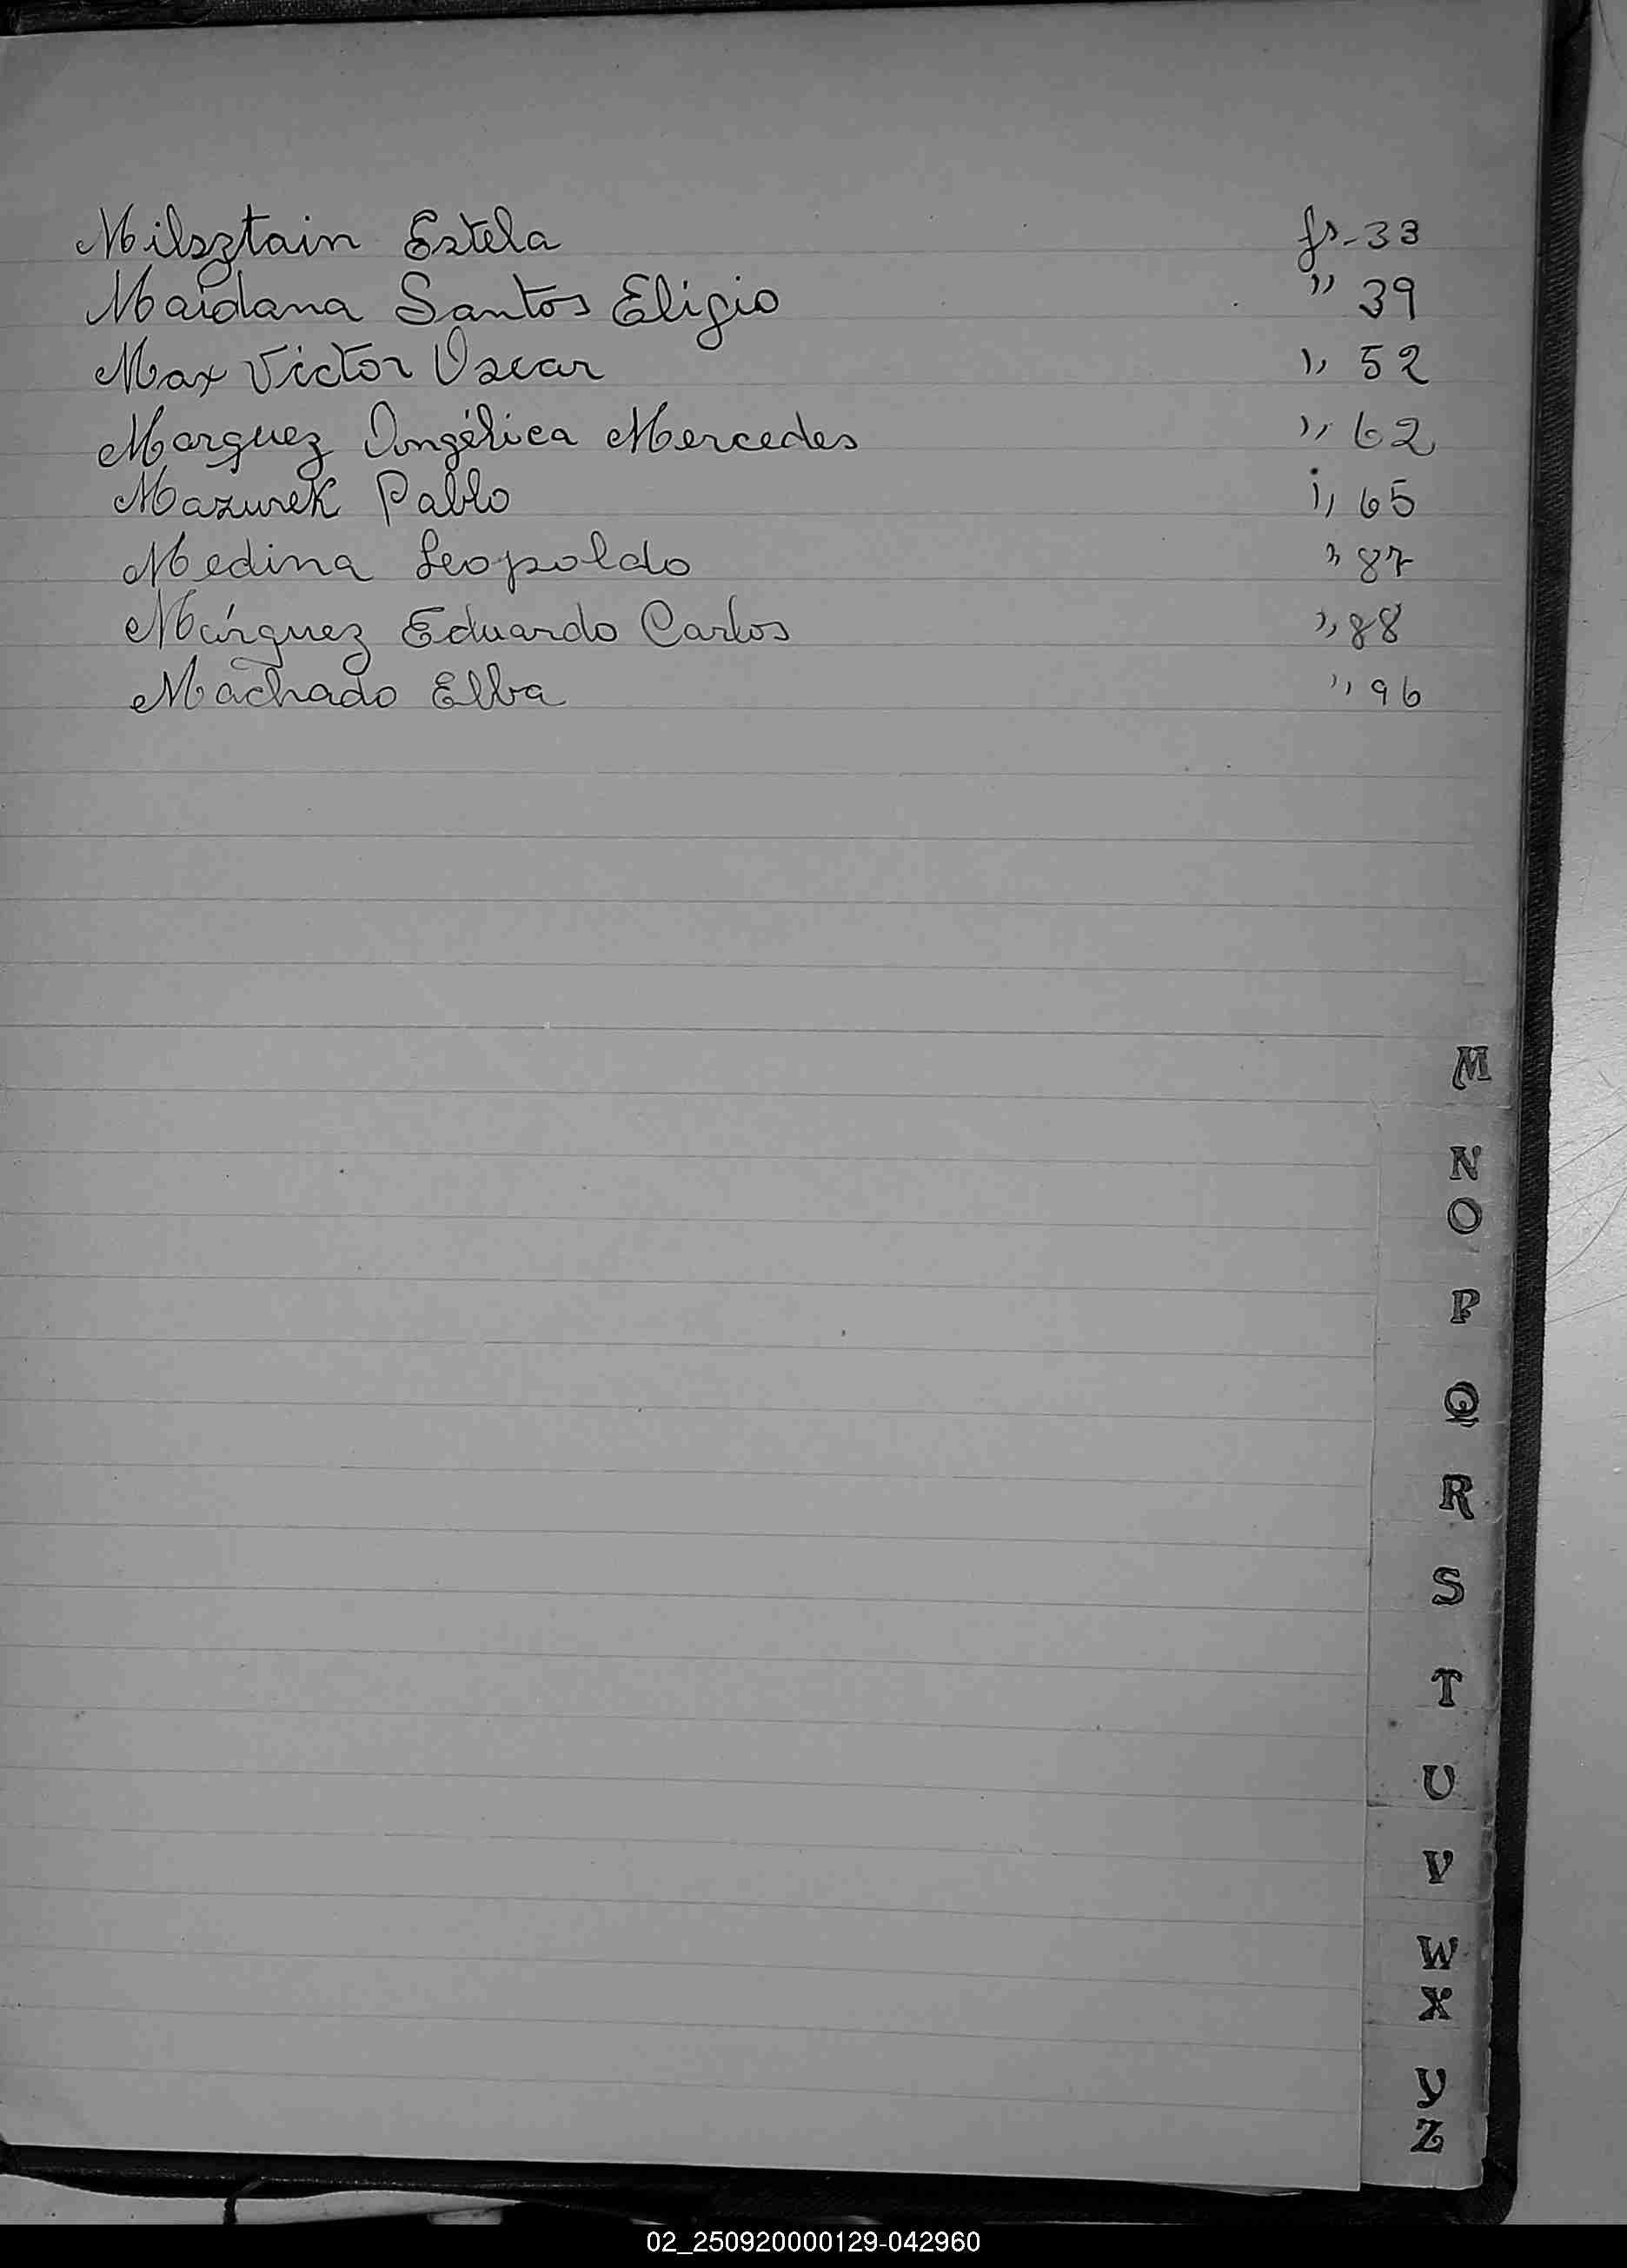 Milsztain Estela fs-33
Maidana Santos Eligio " 39
Max Victor Oscar " 52
Marquez Angélica Mercedes " 62
Mazurek Pablo " 65
Medina Leopoldo " 87
Márquez Eduardo Carlos " 88
Machado Elba " 96
M
N
O
P
Q
R
S
T
U
V
W
X
Y
Z
02_250920000129-042960